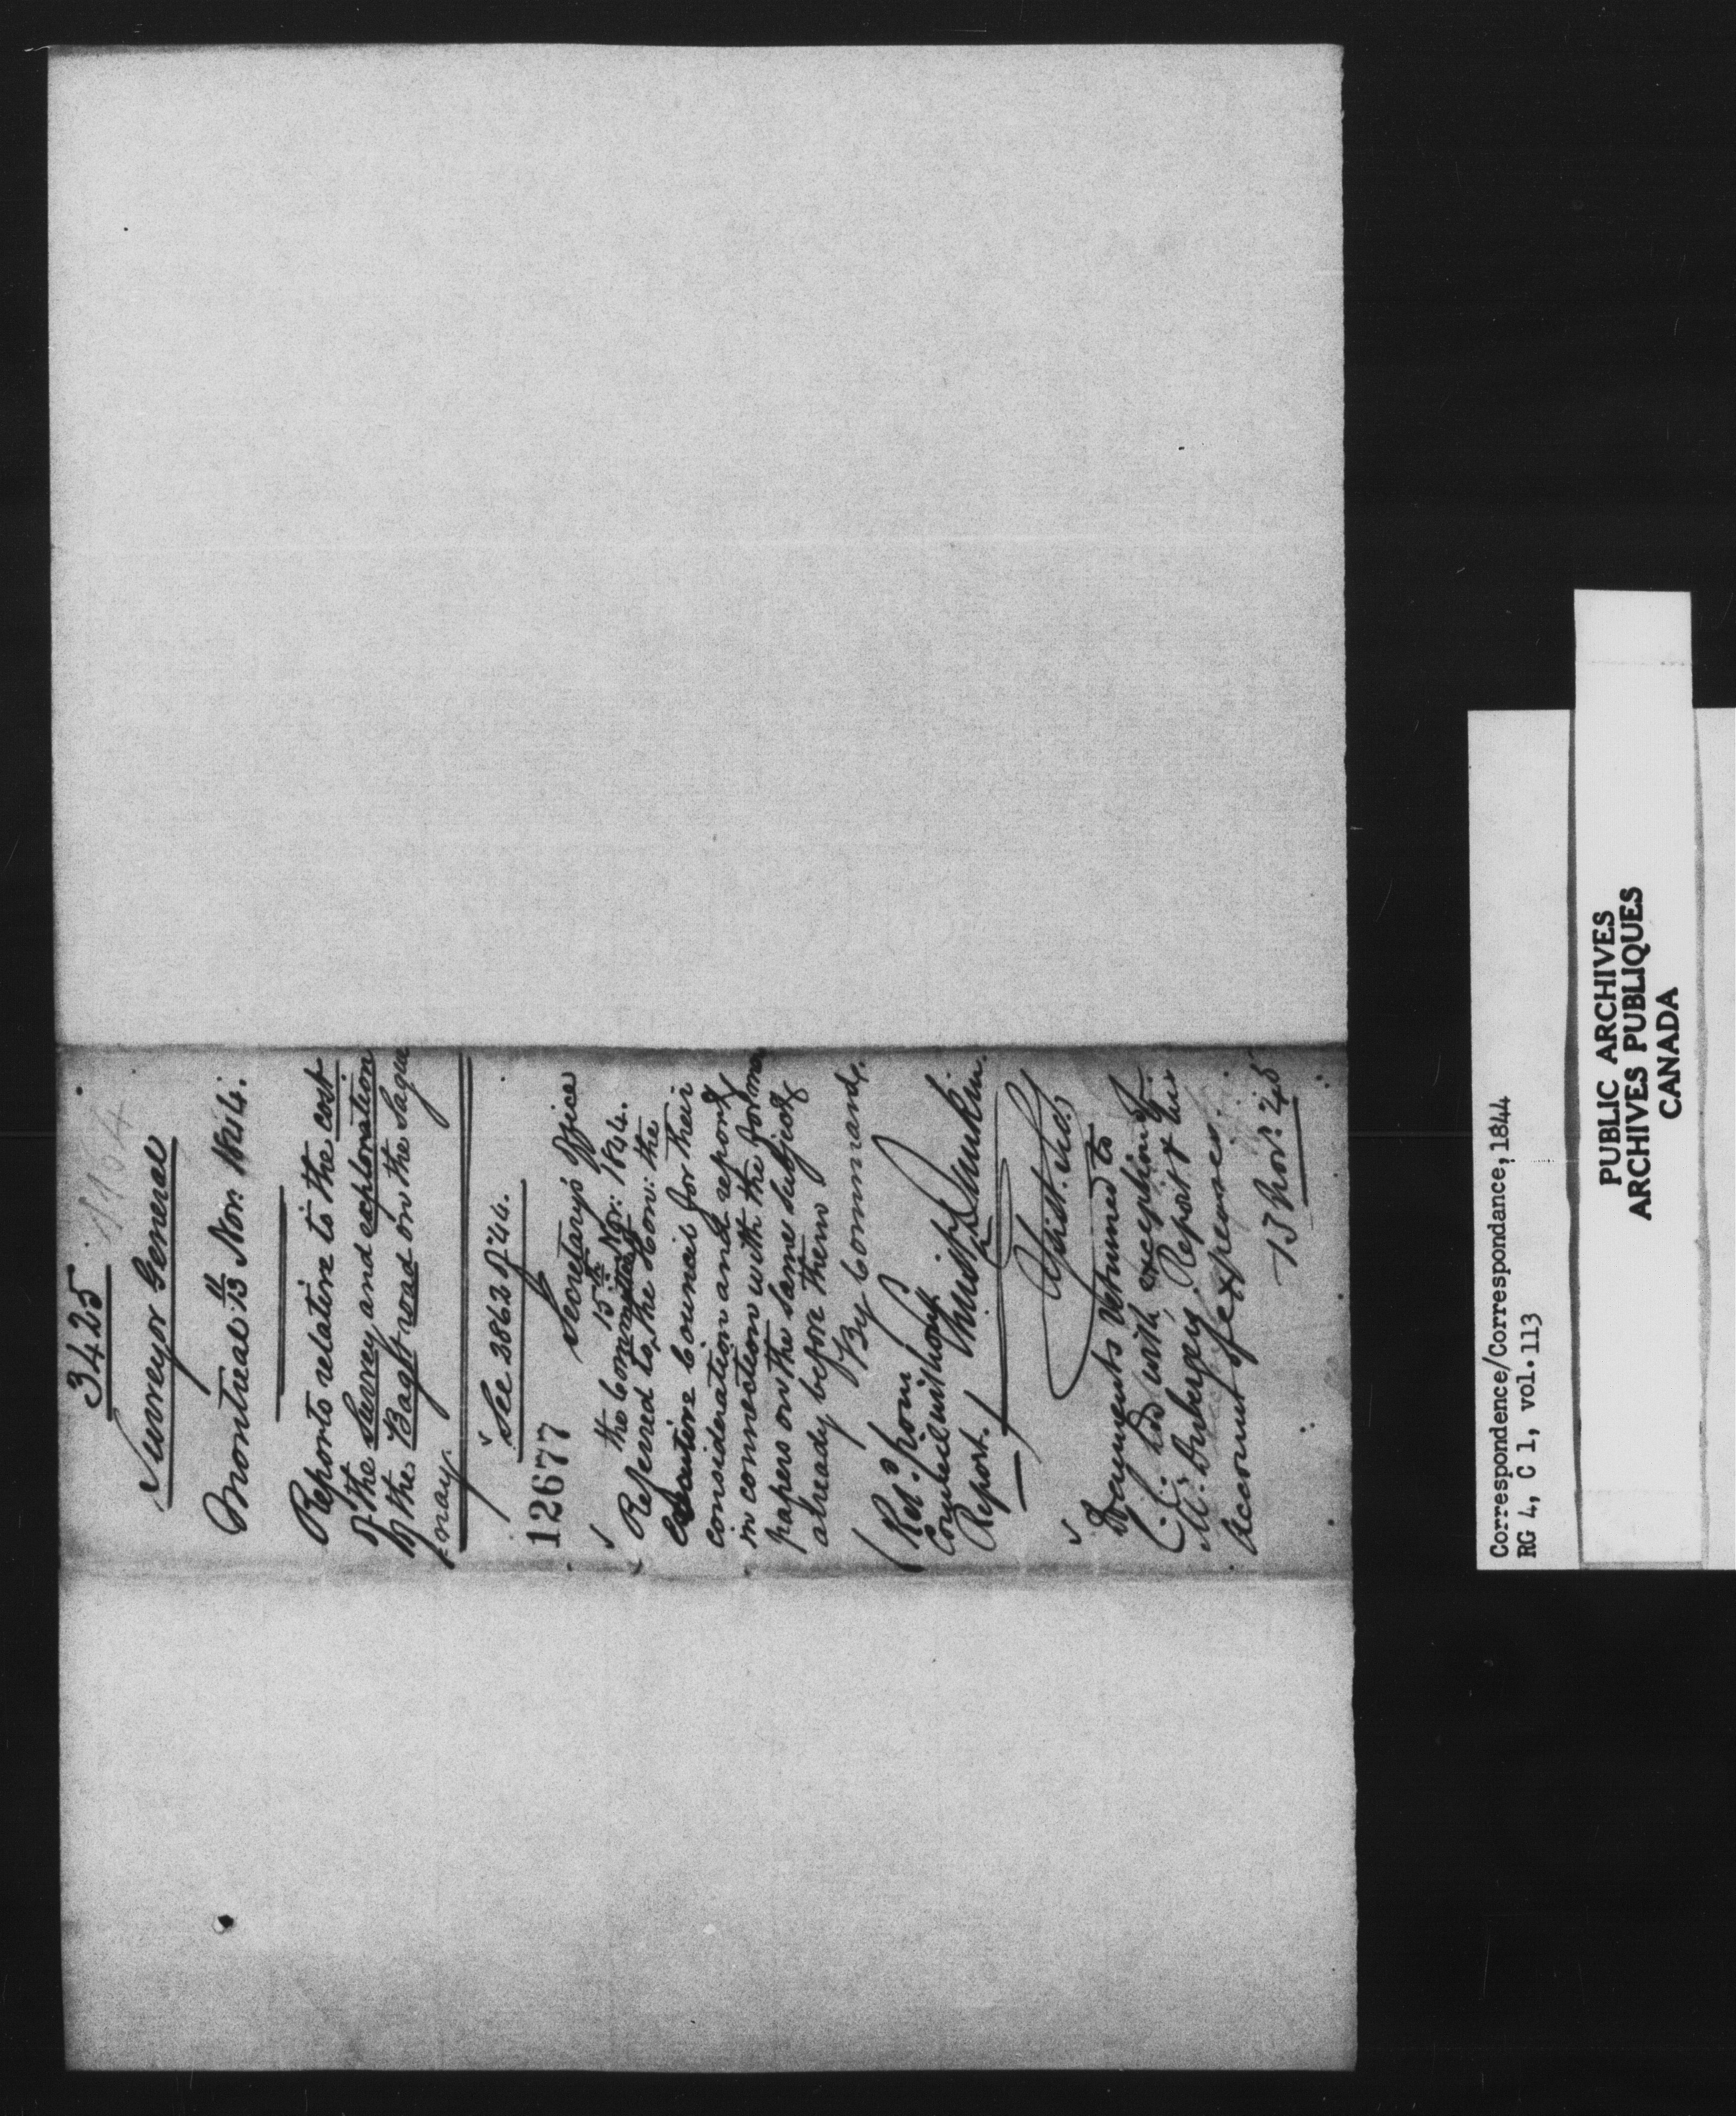 3425
Surveyor General
Montreal 13th Nov: 1844.
Reports relative to the cost
of the Survey and exploration
of the Bagot road on the Sague
nay.
See 3862 of "44.
12677
Secretary's Office
15th Nov: 1844.
the Committee of
Referred to the Hon: the
Executive Council for their
consideration and report,
in connection with the former
papers on the same subject
already before them
By Command,
(Ret.d from
Council without
Report.)
Christ. Dunkin
Assist. Sec.
Documents returned to
C. C. L. D. with exception of
Mr. Duberger's Report & his
account of expenses.
13 Nov: 45
Correspondence/Correspondance, 1844
RG 4, C 1, vol. 113
PUBLIC ARCHIVES
ARCHIVES PUBLIQUES
CANADA